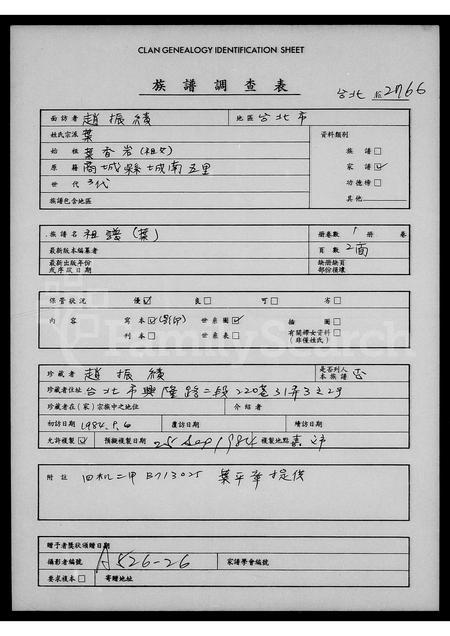 CLAN GENEALOGY IDENTIFICATION SHEET
族譜調查表
台北 2766
面訪者 趙振績 地區 台北市
姓氏宗派 葉 資料類別
始祖 葉香岩(祖父) 族譜□
原籍 商城縣城南五里 家譜☑
世代 3代 功德榜□
族譜包含地區 其他
族譜名 祖譜(葉) 冊卷數 1 冊 卷
最新版本編纂者 頁數 2面
最新出版年份或序跋日期 缺冊缺頁部份損壞
保管狀況 優☑ 良□ 可□ 劣□
內容 寫本☑(影印) 世系圖☑ 插圖□
刊本□ 世系表□ 有關婦女資料(非僅姓氏)□
珍藏者 趙振績 是否列入本族譜 否
珍藏者住址 台北市興隆路二段220巷31弄3之2号
珍藏者在(家)宗族中之地位 介紹者
初訪日期 1984.9.6 覆訪日期 續訪日期
允許複製☑ 預擬複製日期 25 Sep 1984 複製地點
附註 B713025 葉平 提供
贈予者獎狀頒贈日期
攝影者編號 A526-26 家譜學會編號
要求複本□ 寄贈地址
FamilySearch